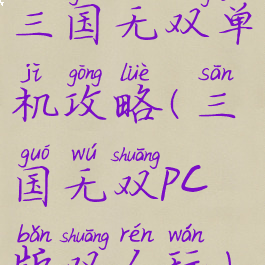 三国无双单
jī gōng lüè sān
机攻略(三
guó wú shuāng
国无双PC
bǎn shuāng rén wán
版双人玩)